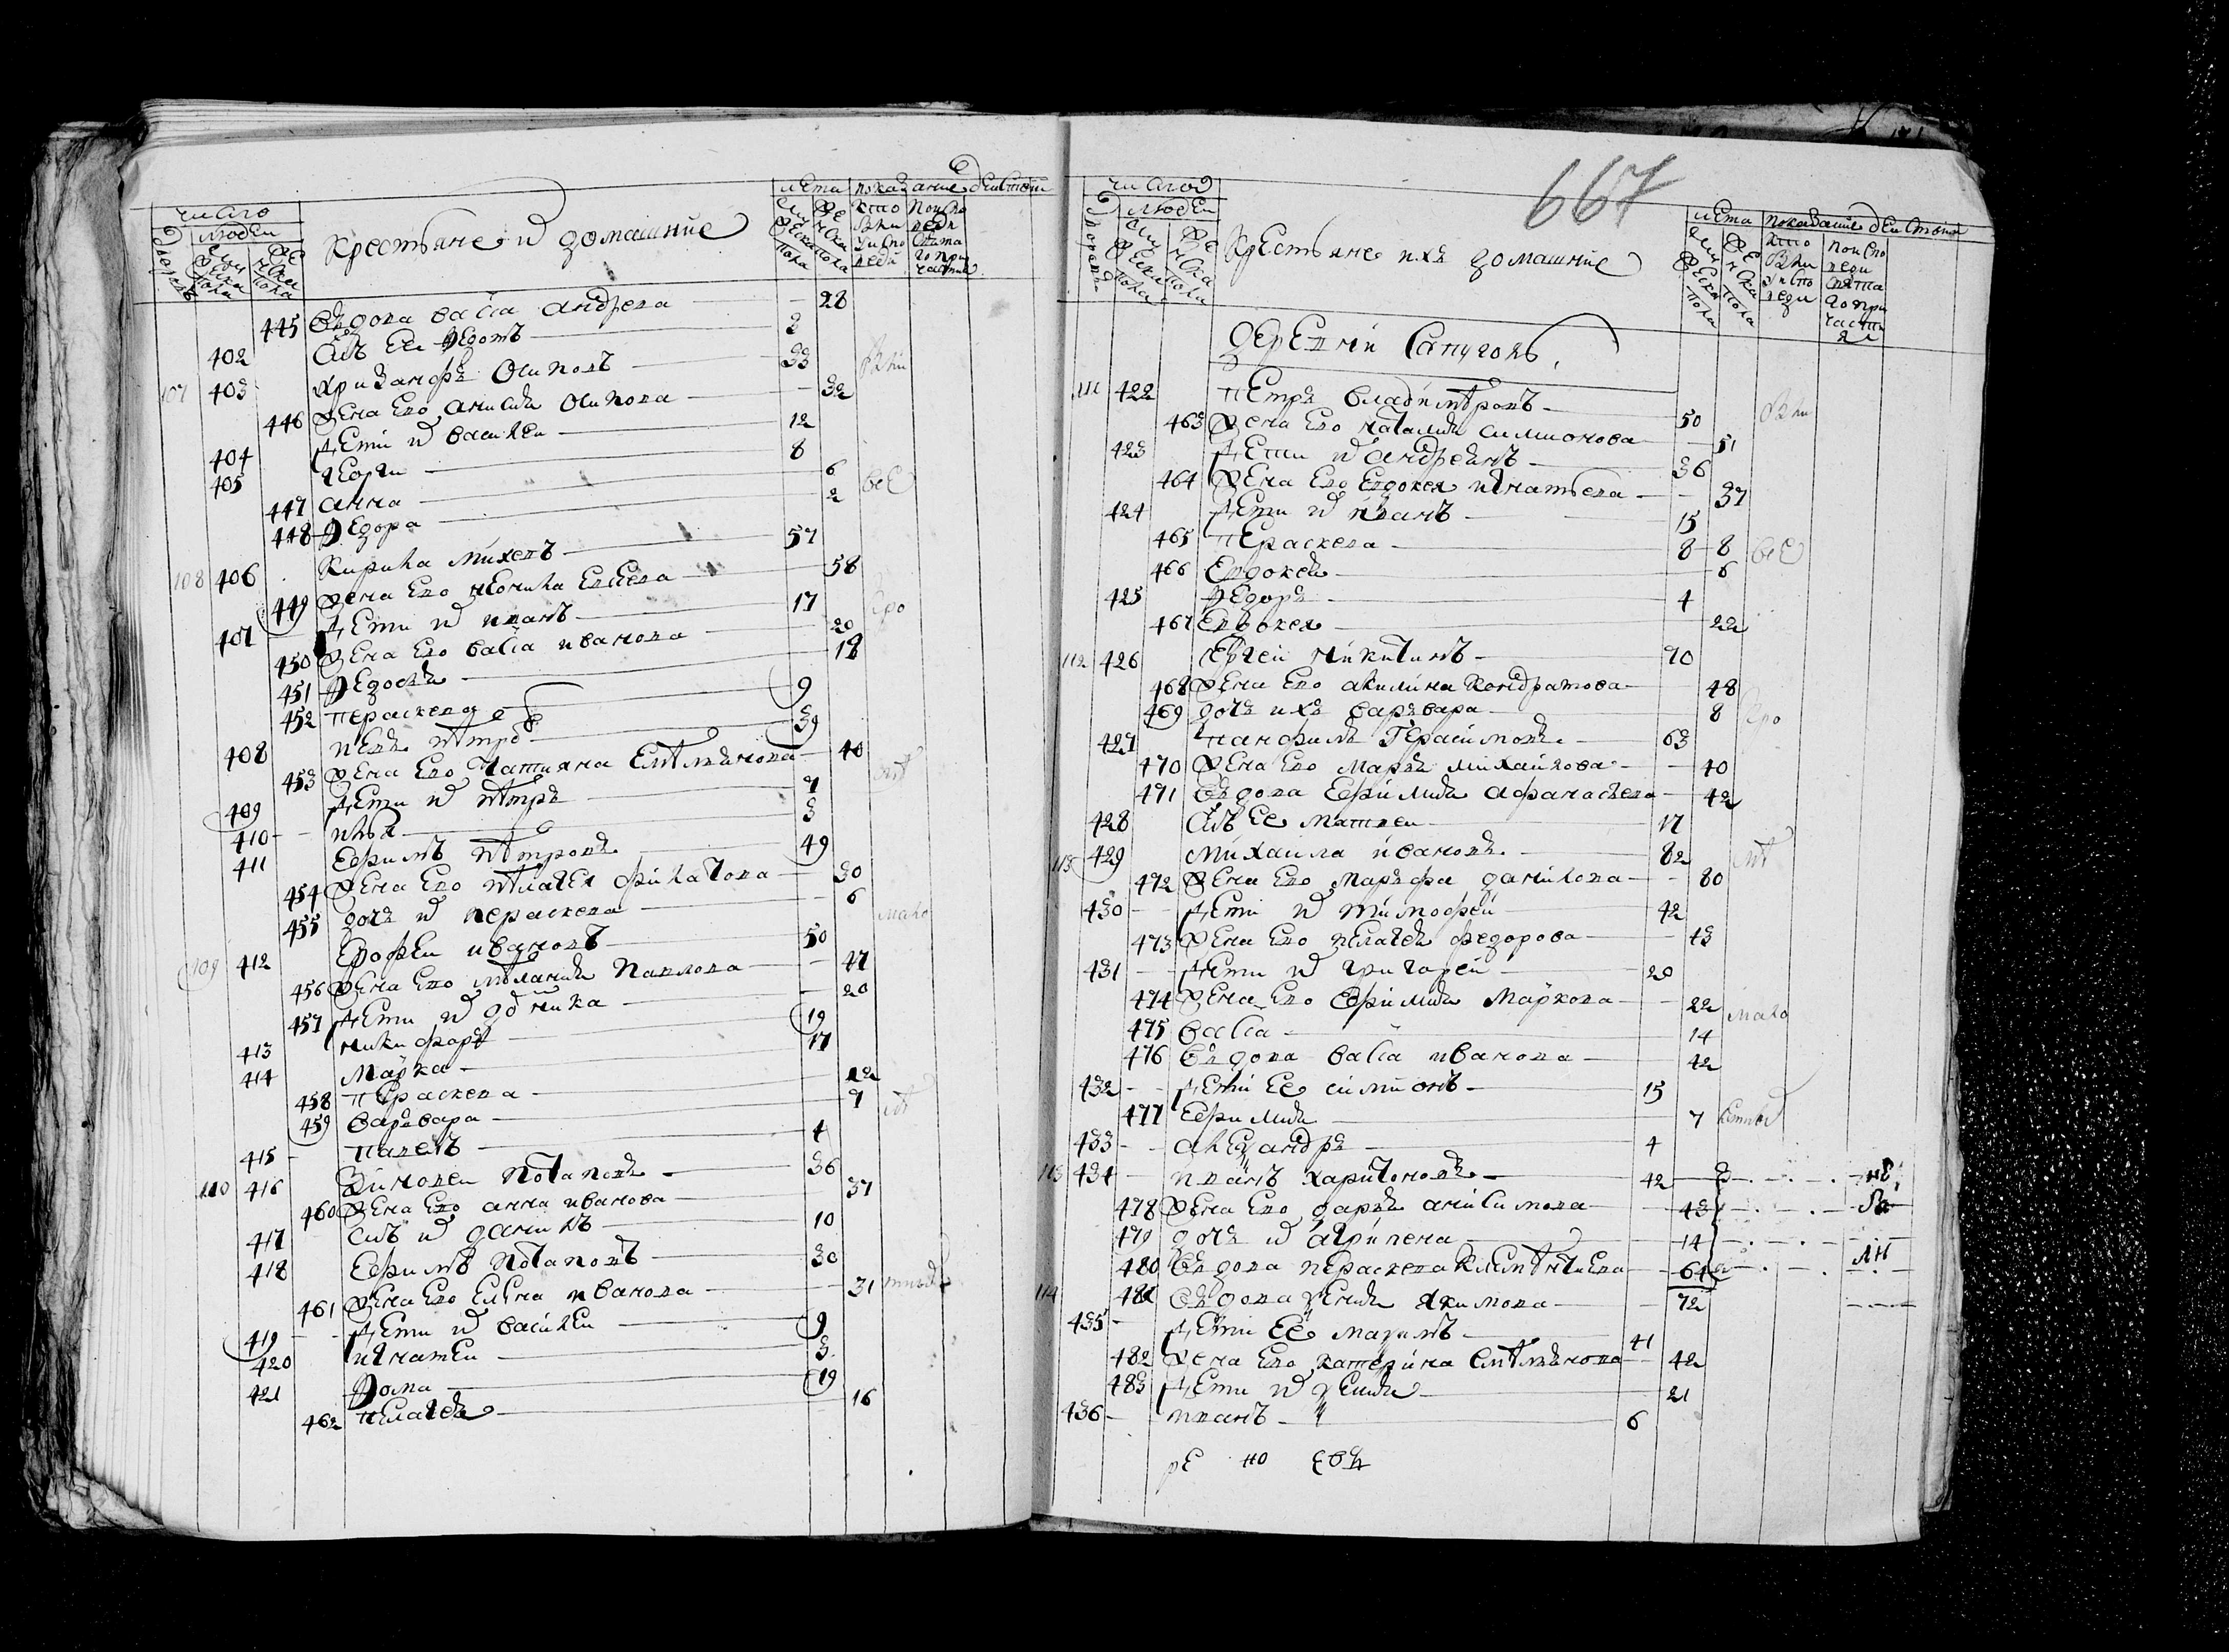 число
людеи
Крестьяне и домашние
лета показание деиства
445 вдова васса андреева — 28
402 сынъ ее Федотъ — 2
107 403 хрисанфъ Осиповъ — 33
446 жена ево анисия Осипова — 32
404 дети их василеи — 12
405 георги — 8
447 анна — 6
448 Федора — 2
108 406 Кирила Михеевъ — 57
449 жена ево неонила Елисеева — 58
407 дети их иванъ — 17
450 жена ево васса иванова — 20
451 Федосья — 18
452 пераскева — 9
408 петръ — 39
453 жена ево татияна Емельянова — 40
409 дети их петръ — 7
410 илья — 3
411 Ефимъ петровъ — 49
454 жена ево пелагея филатова — 30
455 дочь их пераскева — 6
109 412 Ерофеи ивановъ — 50
456 жена ево меланья Павлова — 47
457 дети их домника — 20
413 никифоръ — 19
414 Марка — 17
458 Пераскева — 12
459 варвара — 7
415 павелъ — 4
110 416 Зиновеи Потаповъ — 36
460 жена ево анна иванова — 37
417 сынъ их данилъ — 10
418 Ефимъ Потаповъ — 30
461 жена ево Елена иванова — 31
419 дети их василеи — 9
420 игнатеи — 3
421 Фома — 19
462 пелагея — 16
667
число
людеи
Крестьяне ихъ домашние
лета показание деиства
деревни Сапуговъ
111 422 петръ владиметровъ — 50
463 жена ево наталия симионова — 51
423 дети их андреянъ — 36
464 жена ево Евдокея игнатьева — 37
424 дети их иванъ — 15
465 пераскева — 8 — 8
466 Евдокея — 6
425 Федоръ — 4
467 Евдокея — 22
112 426 сергеи никитинъ — 70
468 жена ево акилина Кондратова — 48
469 дочь ихъ варвара — 8
427 панфилъ Герасимовъ — 63
470 жена ево Марья михаилова — 40
471 вдова Ефимия афанасьева — 42
428 сынъ ее матвеи — 17
113 429 михаила ивановъ — 82
472 жена ево Марфа данилова — 80
430 дети их тимофеи — 42
473 жена ево пелагея федорова — 43
431 дети их григореи — 20
474 жена ево Ефимия Маркова — 22
475 васса — 14
476 вдова васса иванова — 42
432 дети ее симионъ — 15
477 Ефимия — 7
433 александръ — 4
113 434 иванъ харитоновъ — 42
478 жена ево дарья анисимова — 43
479 дочь их агрипена — 14
480 вдова пераскева Клементиева — 64
114 481 вдова ксения якимова — 72
435 дети ее мазимъ — 41
482 жена ево катерина Емельянова — 42
483 дети их ксения — 21
436 иванъ — 6
ре но